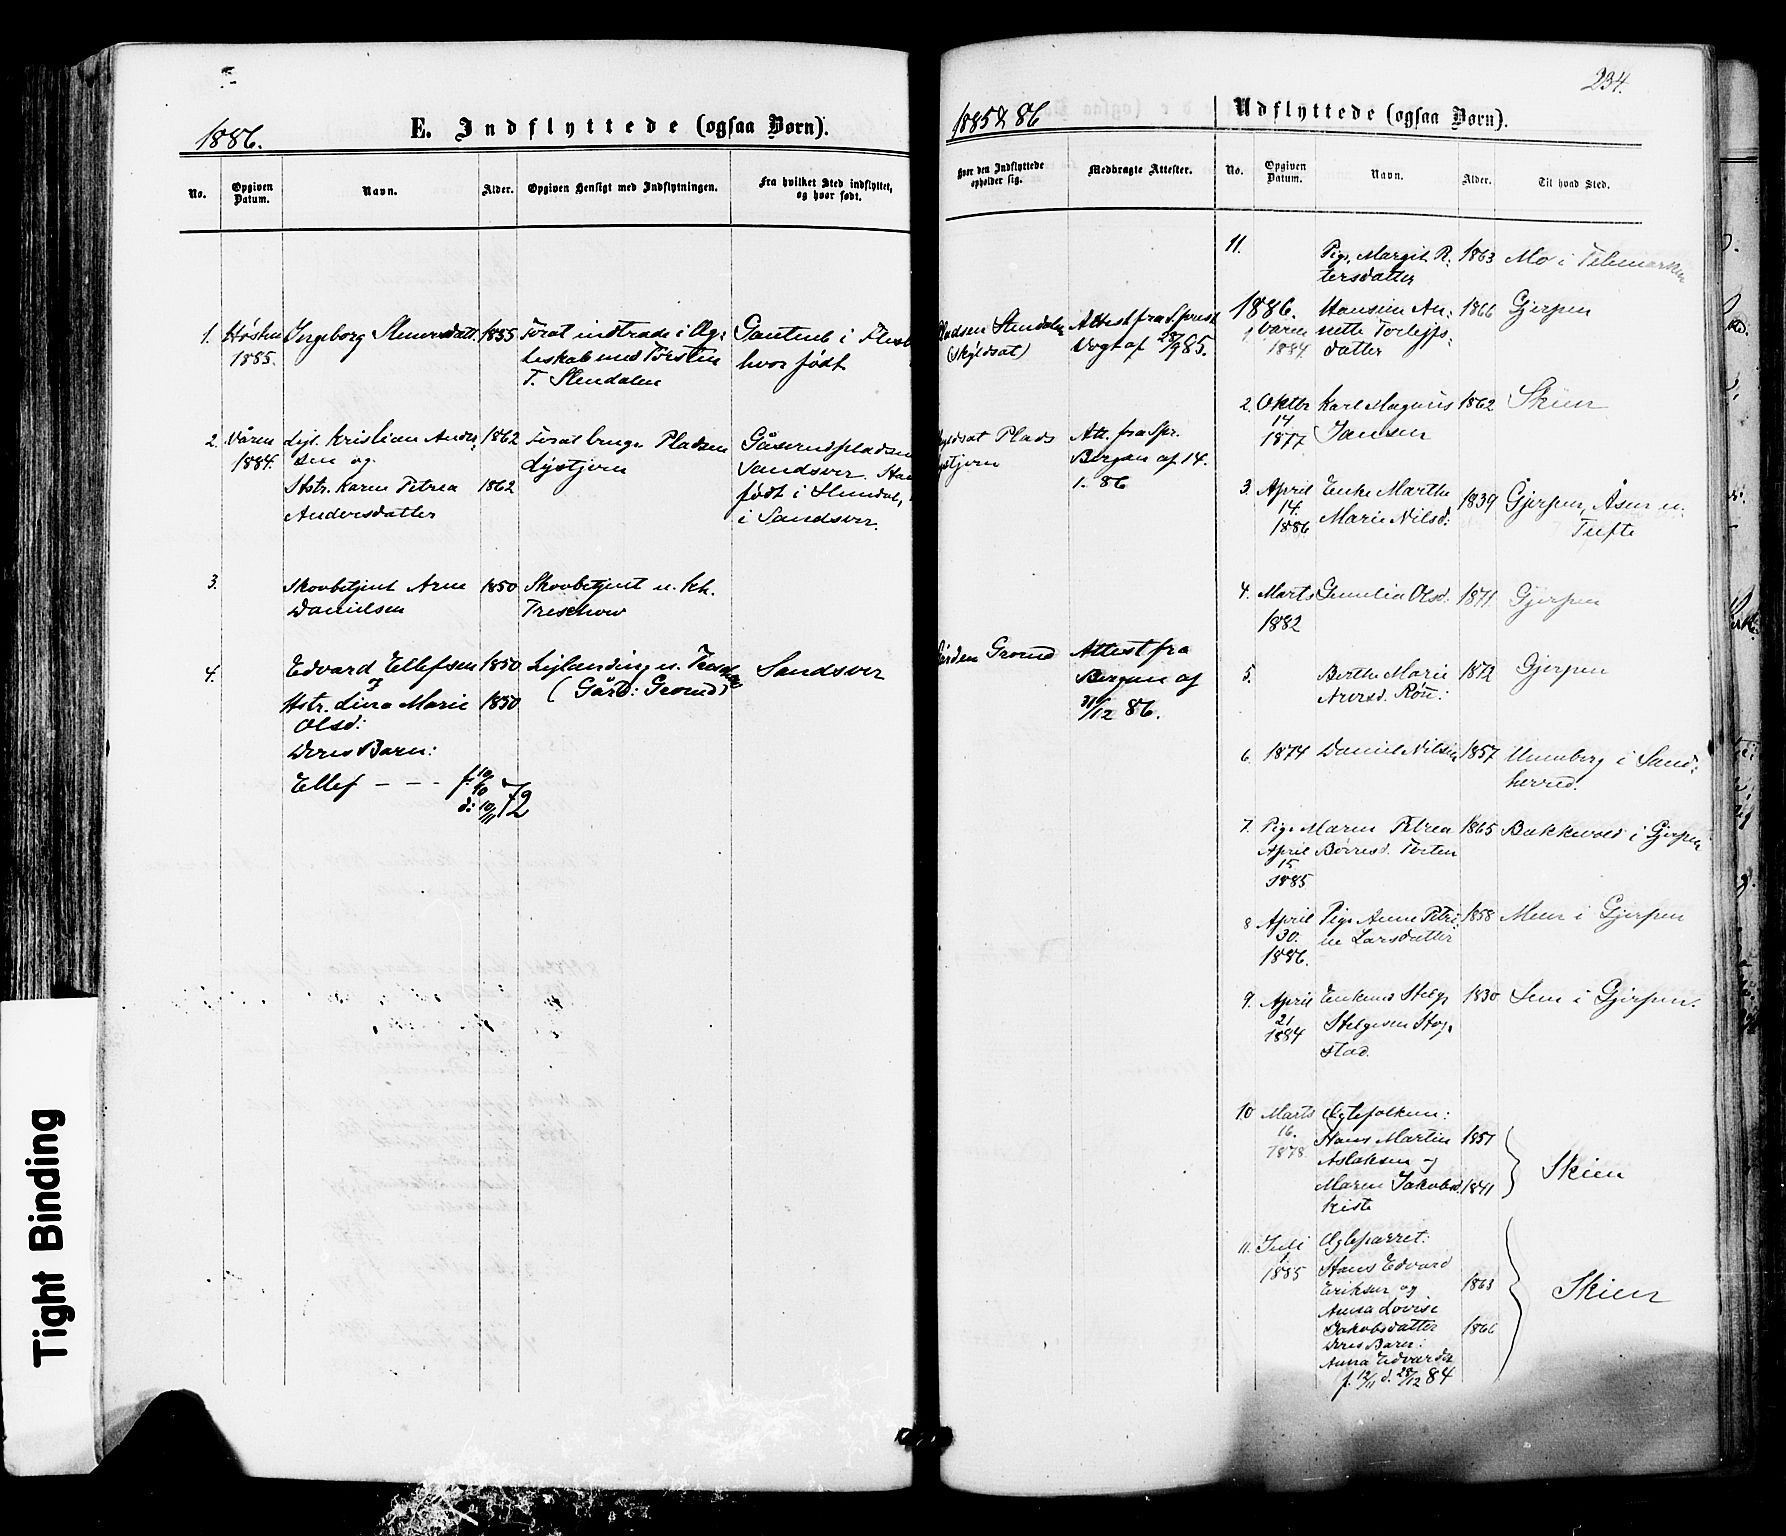 234.
1886.
E. Indflyttede (ogsaa Børn).
No.
Opgiven Datum.
Navn.
Alder.
Opgiven Hensigt med Indflytningen.
Fra hvilket Sted indflyttet,
og hvor født.
1. Høsten Ingeborg Stenersdatt. 1855 Forat indtræde i Æg- Gamteub i Flesb
1885. teskab med Torsten hvor født
T. Stendalen
2. Våren Ligl. Kristian Ander- 1862 Forat bruge Pladsen Gåserudpladsen
1884. sen og Lystjern Sandsver. Han
Hstr. Karen Petrea 1862 født i Hundal,
Andersdatter i Sandsver.
3. Skovbetjent Arne 1850 Skovbetjent u. Kh.
Danielsen Treschow
4. Edvard Ellefsen 1850 Leilænding u. Sandsver
og (Gård: Gromd)
Hstr. Lina Marie 1850
Olsd:
Deres Barn:
Ellef - - - f. 10/10
d: 10/11 72
1885 & 86
Udflyttede (ogsaa Børn).
Hvor den Indflyttede
opholder sig.
Medbragte Attester.
No.
Opgiven Datum.
Navn.
Alder.
Til hvad Sted.
Pladsen Stendalen Attest fra Sprest
(Skyldsat) Vogt af 28/9 85.
Skyldsat Plads Att. fra Spr.
Lystjern Bergan af 14.
1. 86
Gården Gromd Attest fra
Bergan af
31/12 86.
11. Pige Margit P. 1863 Mo i Telemarken
tersdatter
1886. Hansine An- 1866 Gjerpen
1. Våren nette Torleifs-
1884 datter
2. Oktbr Karl Magnus 1862 Skien
14 Jansen
1877
3. April Enke Marthe 1839 Gjerpen, Åsen u.
14. Marie Nilsd: Tufte
1886
4. Marts Gunelia Olsd: 1871 Gjerpen
1882
5. Berthe Marie 1872 Gjerpen
6. 1874 Daniel Nilsen 1857 Unneberg i Sand-
herred.
7. Pige Maren Petrea 1865 Bakkevold i Gjerpen
April Børresd. Torten
15
1885
8 April Pige Anne Petri- 1858 Meen i Gjerpen
30. ne Larsdatter
1886.
9. April Enkemd Helge 1830 Sem i Gjerpen.
21 Helgesen Hog-
1884 stad.
10 Marts Ægtefolkene:
16. Hans Martin 1851
1878 Aslaksen og Skien
Maren Jakobsd. 1841
Kiste
11. Juli Ægteparret:
1 Hans Edvard
1885 Eriksen og 1863
Anna Lovise Skien
Jakobsdatter 1866
Deres Barn:
Anna Edvarda
f. 12/11 d. 28/12 84
Tight Binding